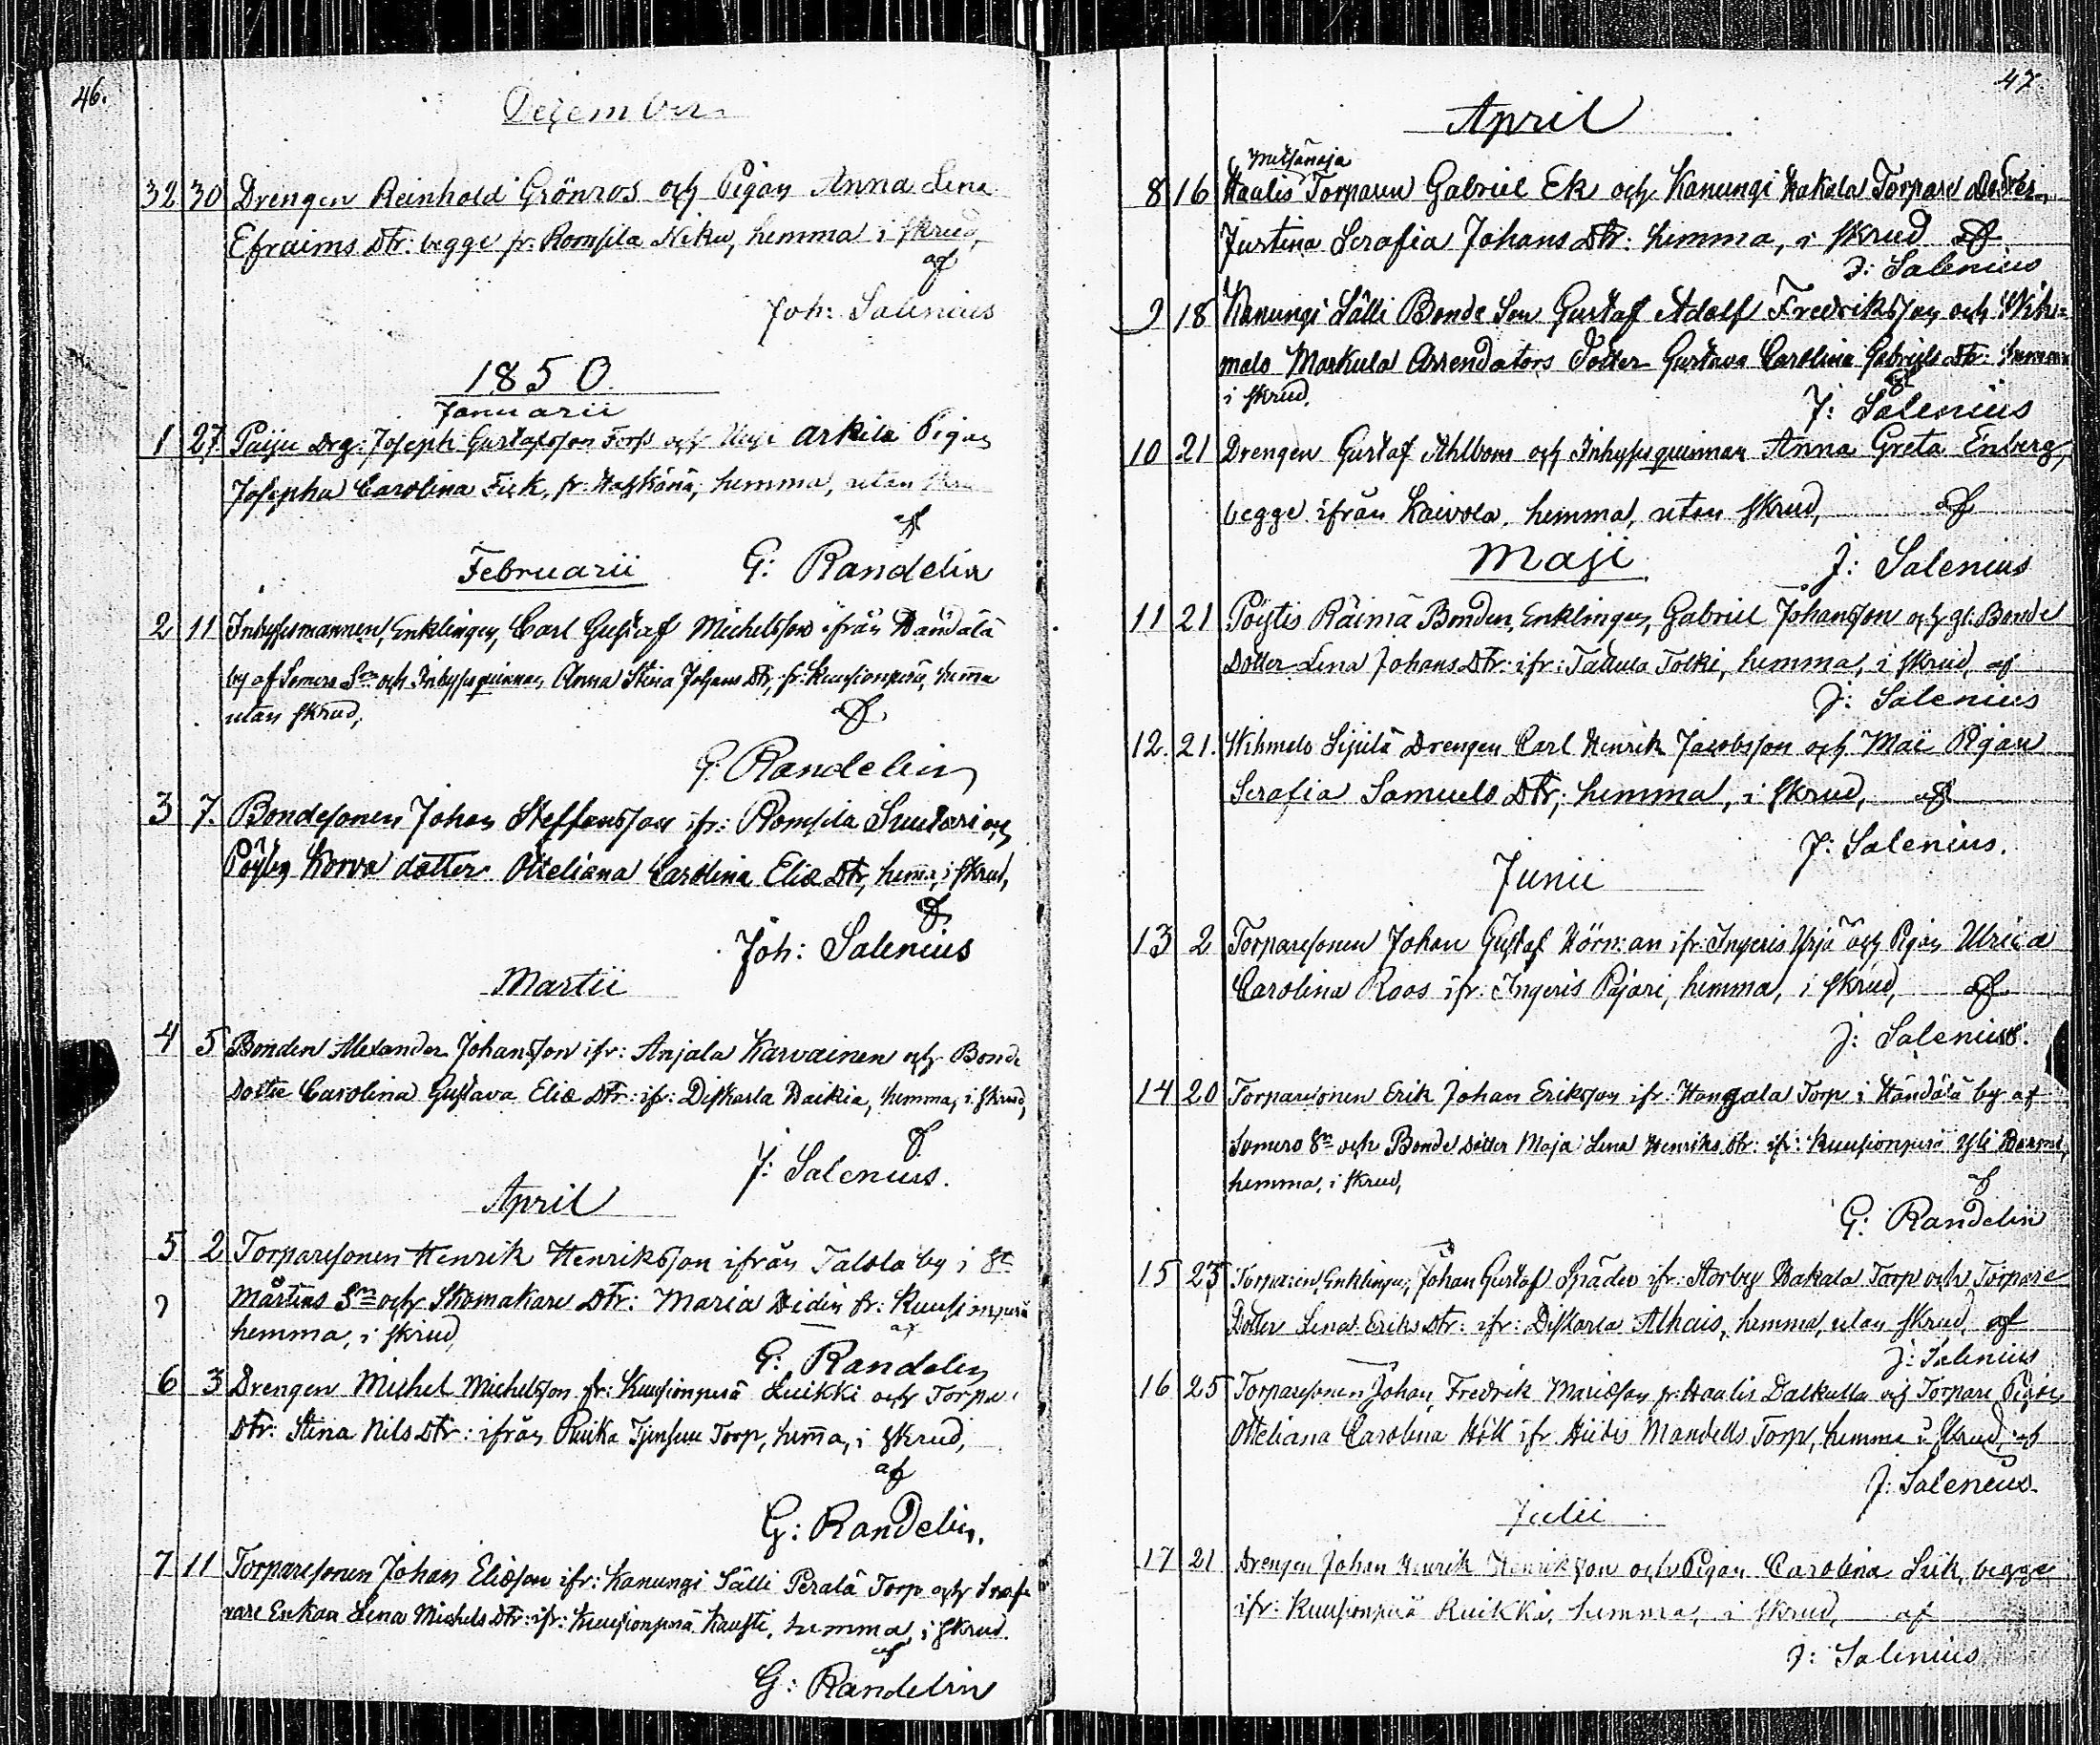 46.
December
32 30 Drengen Reinhold Grönros och Pigan Anna Lena
Efraims Dtr: begge fr: Romsila Niku, hemma i skrud,
af
Joh: Salenius
1850.
Januarii
1 27. Paiju Drg: Joseph Gustafsson Forss och arkila Pigan
Josepha Carolina Fick, fr: hemma, utan
af
G: Randelin
Februarii
2 11 Inhysesmannen, Enklingen, Carl Gustaf Michelsson ifrån Händälä
by af Somero Sn och Inhysesquinnan Anna Stina Johans Dtr, fr: Kuusjonperä, hemma
utan skrud,
af
G. Randelin
3 7. Bondesonen Johan Steffansson ifr: Romsila Suutari och
Korva dotter Otteliana Carolina Eliæ Dtr, hemma, i skrud,
af
Joh: Salenius
Martii
4 5 Bonden Alexander Johansson ifr: Anjala Karvainen och Bonde
Dottr Carolina Gustava Eliæ Dtr: ifr: Diskarla Waikia, hemma, i skrud,
af
J: Salenius.
April
5 2 Torparesonen Henrik Henriksson ifrån Talola by i St
Mårtins Sn och Skomakare Dtr: Maria Widin fr: Kuusjonperä
hemma, i skrud,
af
G: Randelin
6 3 Drengen Michel Michelsson fr: Kuusjonperä Luikki och Torpa
Dtr: Stina Nils Dtr: ifrån Torp, hemma, i skrud,
af
G: Randelin.
7 11 Torparesonen Johan Eliæson ifr: Kanungi Sälli Perälä Torp och
Enkan Lena Michels Dtr: ifr: Kuusjonperä hemma, i skrud.
af
G: Randelin
47.
April
Metsänoja
8 16 Haalis Torparen Gabriel Ek och Kanungi Hakala Torpare Dotter
Justina Serafia Johans Dtr: hemma, i skrud af
J: Salenius
9 18 Kanungi Sälli Bonde Son Gustaf Adolf Fredriksson och Wih=
melo Markula Arrendators Dotter Gustava Carolina Gabriels Dtr: hemma
i skrud.
af
J: Salenius
10 21 Drengen Gustaf Ahlbom och Inhysesquinnan Anna Greta Enberg,
begge ifrån Kaivola, hemma, utan skrud, af
J: Salenius
Maji
11 21 Pöytis Räimä Bonden, Enklingen, Gabriel Johansson och gl: Bonde
Dotter Lena Johans Dtr: ifr: Tattula Tolki, hemma, i skrud, af
J: Salenius
12. 21. Wihmelo Sipilä Drengen Carl Henrik Jacobsson och Pigan
Serafia Samuels Dtr; hemma, i skrud, af
J: Salenius.
Junii
13 2 Torparesonen Johan Gustaf Hörman ifr: Ingeris Yrjä och Pigan Ulrica
Carolina Roos ifr: Ingeris Pajari, hemma, i skrud, af
J: Salenius.
14 20 Torparesonen Erik Johan Eriksson ifr: Hangala Torp i Händälä by af
Somero Sn och Bonde Dotter Maja Lena Henriks Dtr: ifr: Kuusjonperä
hemma, i skrud,
af
G: Randelin
15 23 Torparen, Enklingen, Johan Gustaf ifr: Storby Hakala Torp och Torpare
Dotter Lena Eriks Dtr: ifr: Diskarla Alhais, hemma, utan skrud, af
J: Salenius
16 25 Torparesonen Johan Fredrik fr: Haalis Dalkulla och Torpare Pigan
Otteliana Carolina Höll ifr Mandells Torp, hemma i skrud, af
J: Salenius.
Julii
17 21 Drengen Johan Henrik Henriksson och Pigan Carolina begge
ifr: Kuusjonperä hemma, i skrud, af
J: Salenius